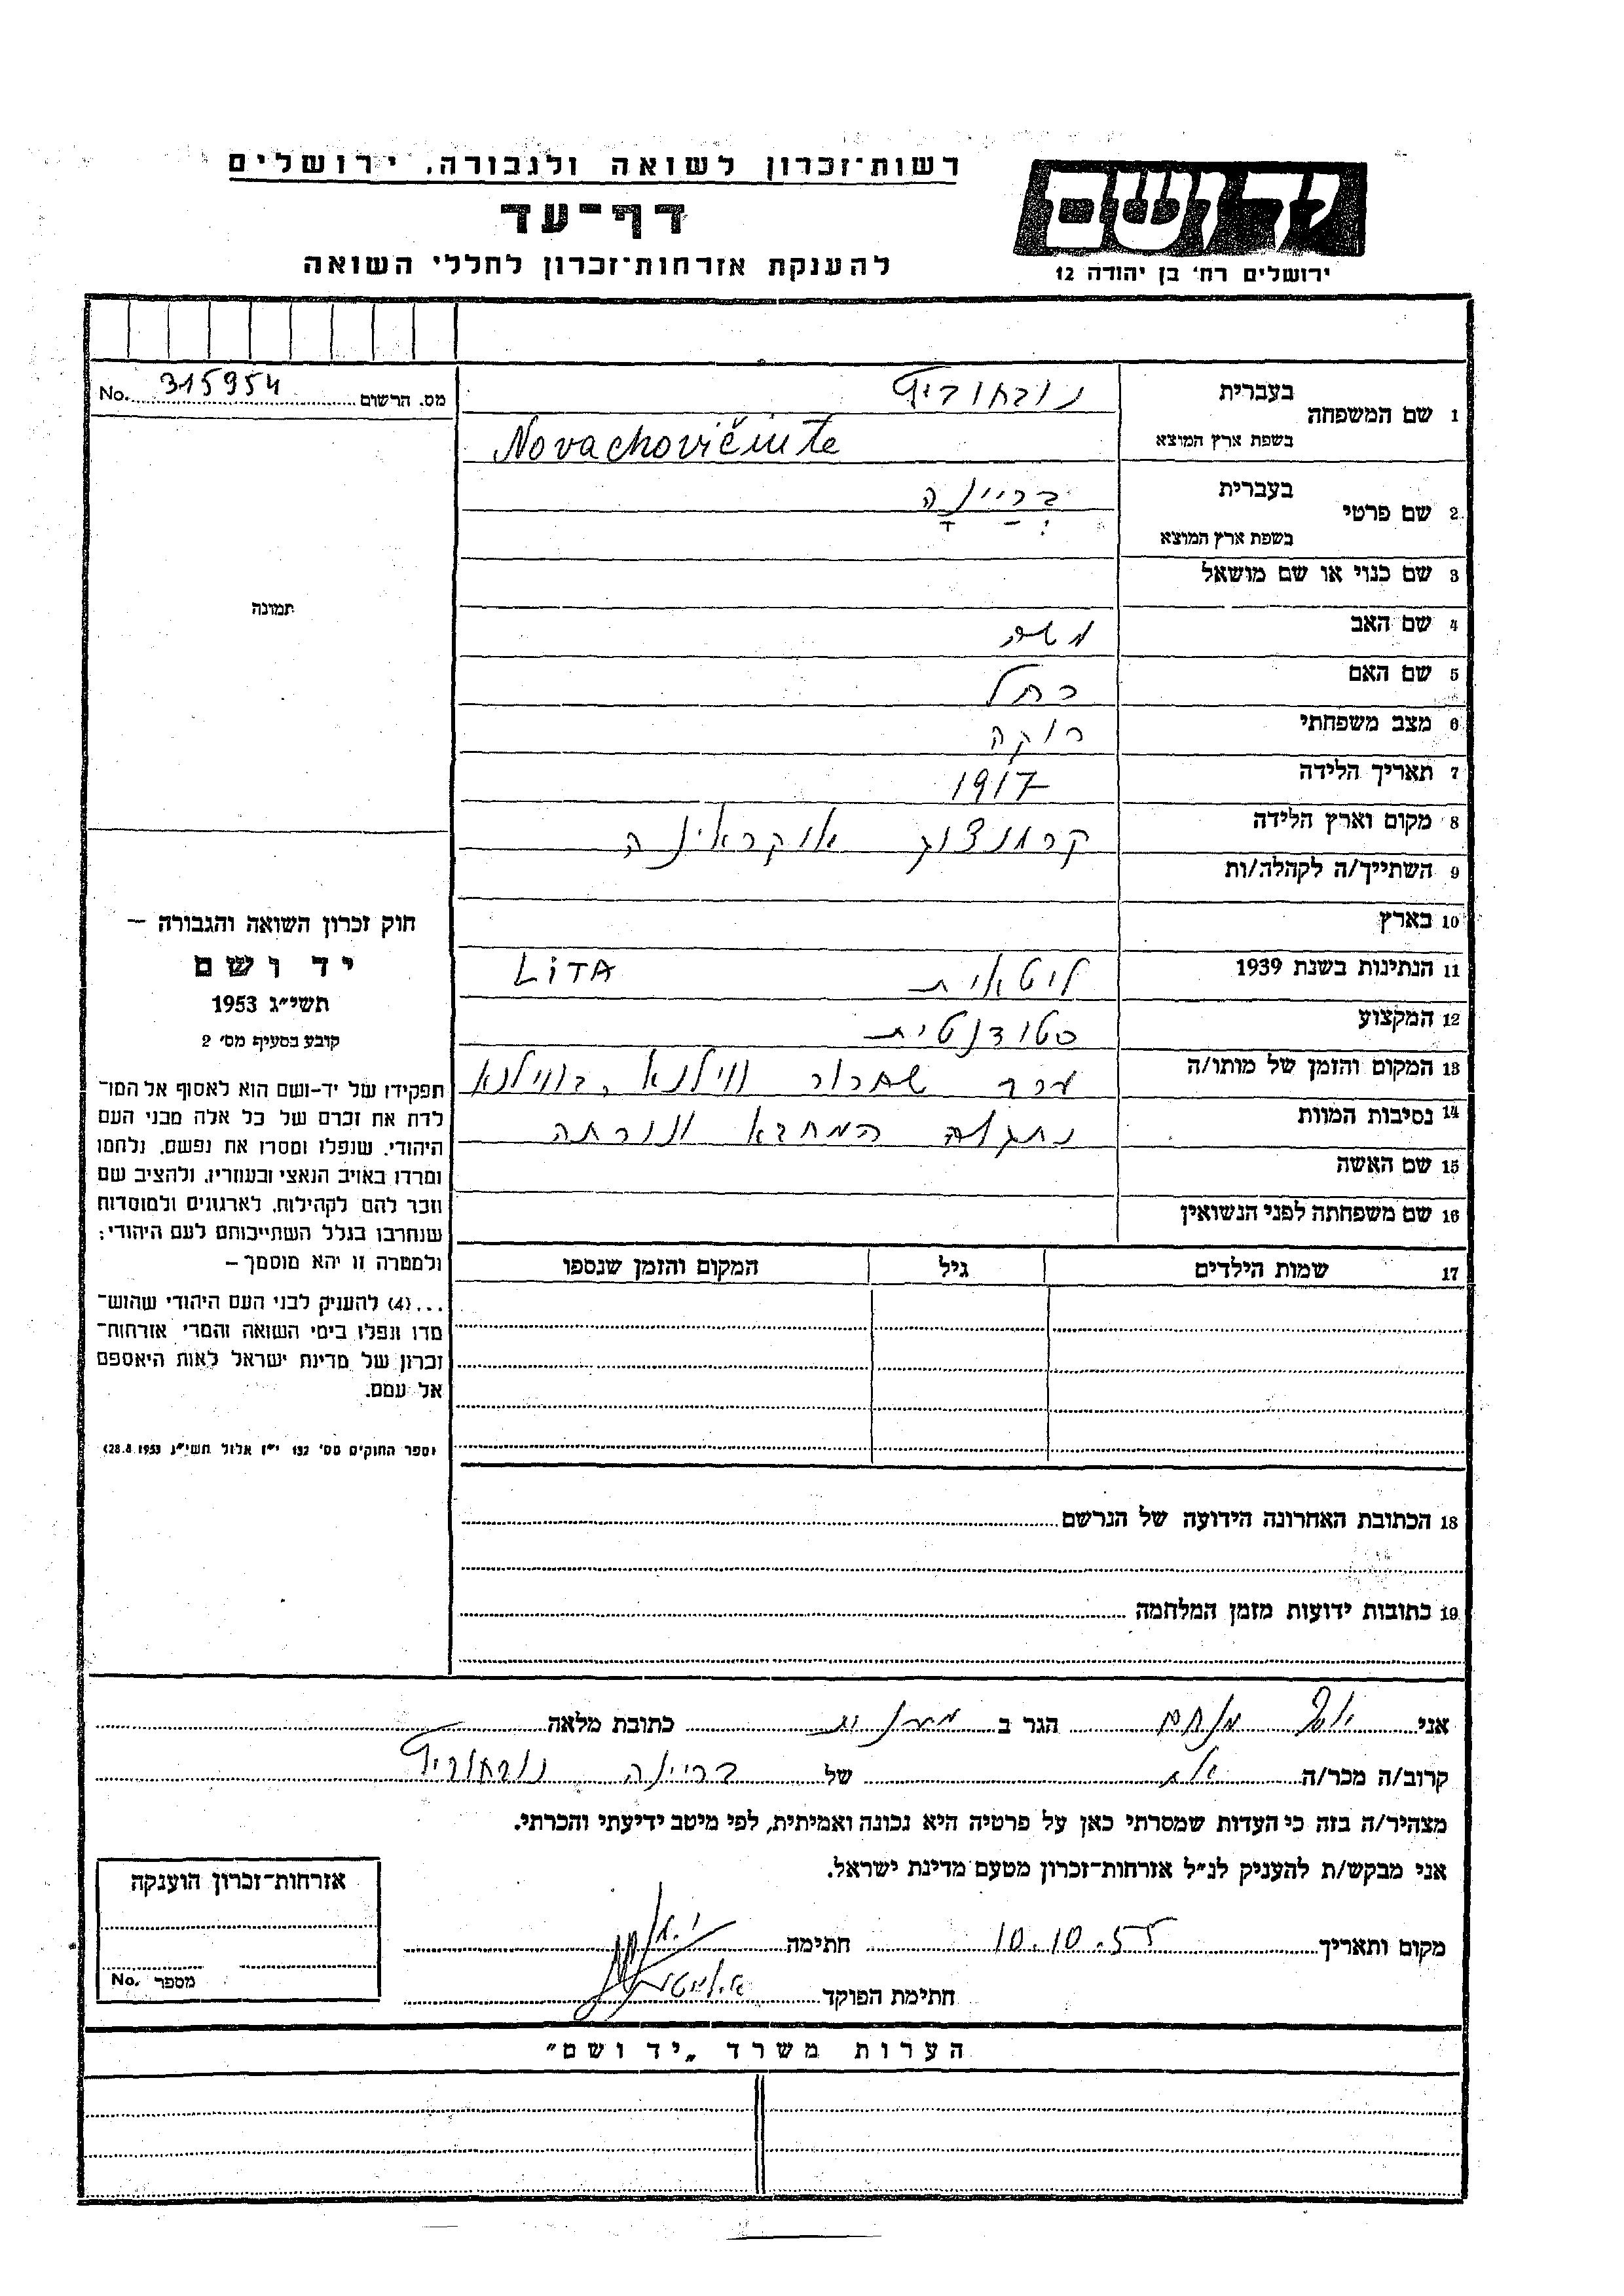 רשות־זכרון לשואה ולגבורה, ירושלים
דף־עד
להענקת אזרחות־זכרון לחללי השואה
יד ושם
ירושלים רח' בן יהודה 12
מס. הרשום 315954 No.
1 שם המשפחה
בעברית נובחוביץ
בשפת ארץ המוצא Novachovičiute
2 שם פרטי
בעברית בריינה
בשפת ארץ המוצא
3 שם כנוי או שם מושאל
4 שם האב משה
5 שם האם רחל
6 מצב משפחתי רוקה
7 תאריך הלידה 1917
8 מקום וארץ הלידה קרמנצוג אוקראינה
9 השתייך/ה לקהלה/ות
10 בארץ
11 הנתינות בשנת 1939 ליטאית LiTA
12 המקצוע סטודנטית
13 המקום והזמן של מותו/ה ערב שחרור ווילנא, בווילנא
14 נסיבות המוות נתגלה המחבא ונורתה
15 שם האשה
16 שם משפחתה לפני הנשואין
17 שמות הילדים גיל המקום והזמן שנספו
18 הכתובת האחרונה הידועה של הנרשם
19 כתובות ידועות מזמן המלחמה
תמונה
חוק זכרון השואה והגבורה –
יד ושם
תשי״ג 1953
קובע בסעיף מס' 2
תפקידו של יד-ושם הוא לאסוף אל המו־
לדת את זכרם של כל אלה מבני העם
היהודי, שנפלו ומסרו את נפשם, נלחמו
ומרדו באויב הנאצי ובעוזריו, ולהציב שם
וזכר להם לקהילות, לארגונים ולמוסדות
שנחרבו בגלל השתייכותם לעם היהודי;
ולמטרה זו יהא מוסמך –
...(4) להעניק לבני העם היהודי שהוש־
מדו ונפלו בימי השואה והמרי אזרחות־
זכרון של מדינת ישראל לאות היאספם
אל עמם.
(ספר החוקים מס' 132 י״ז אלול תשי״ג 28.8.1953)
אני מנחם הגר ב כתובת מלאה
קרוב/ה מכר/ה אח של בריינה נובחוביץ
מצהיר/ה בזה כי העדות שמסרתי כאן על פרטיה היא נכונה ואמיתית, לפי מיטב ידיעתי והכרתי.
אני מבקש/ת להעניק לנ״ל אזרחות־זכרון מטעם מדינת ישראל.
מקום ותאריך 10.10.55 חתימה
חתימת הפוקד
אזרחות־זכרון הוענקה
מספר No.
הערות משרד „יד ושם״